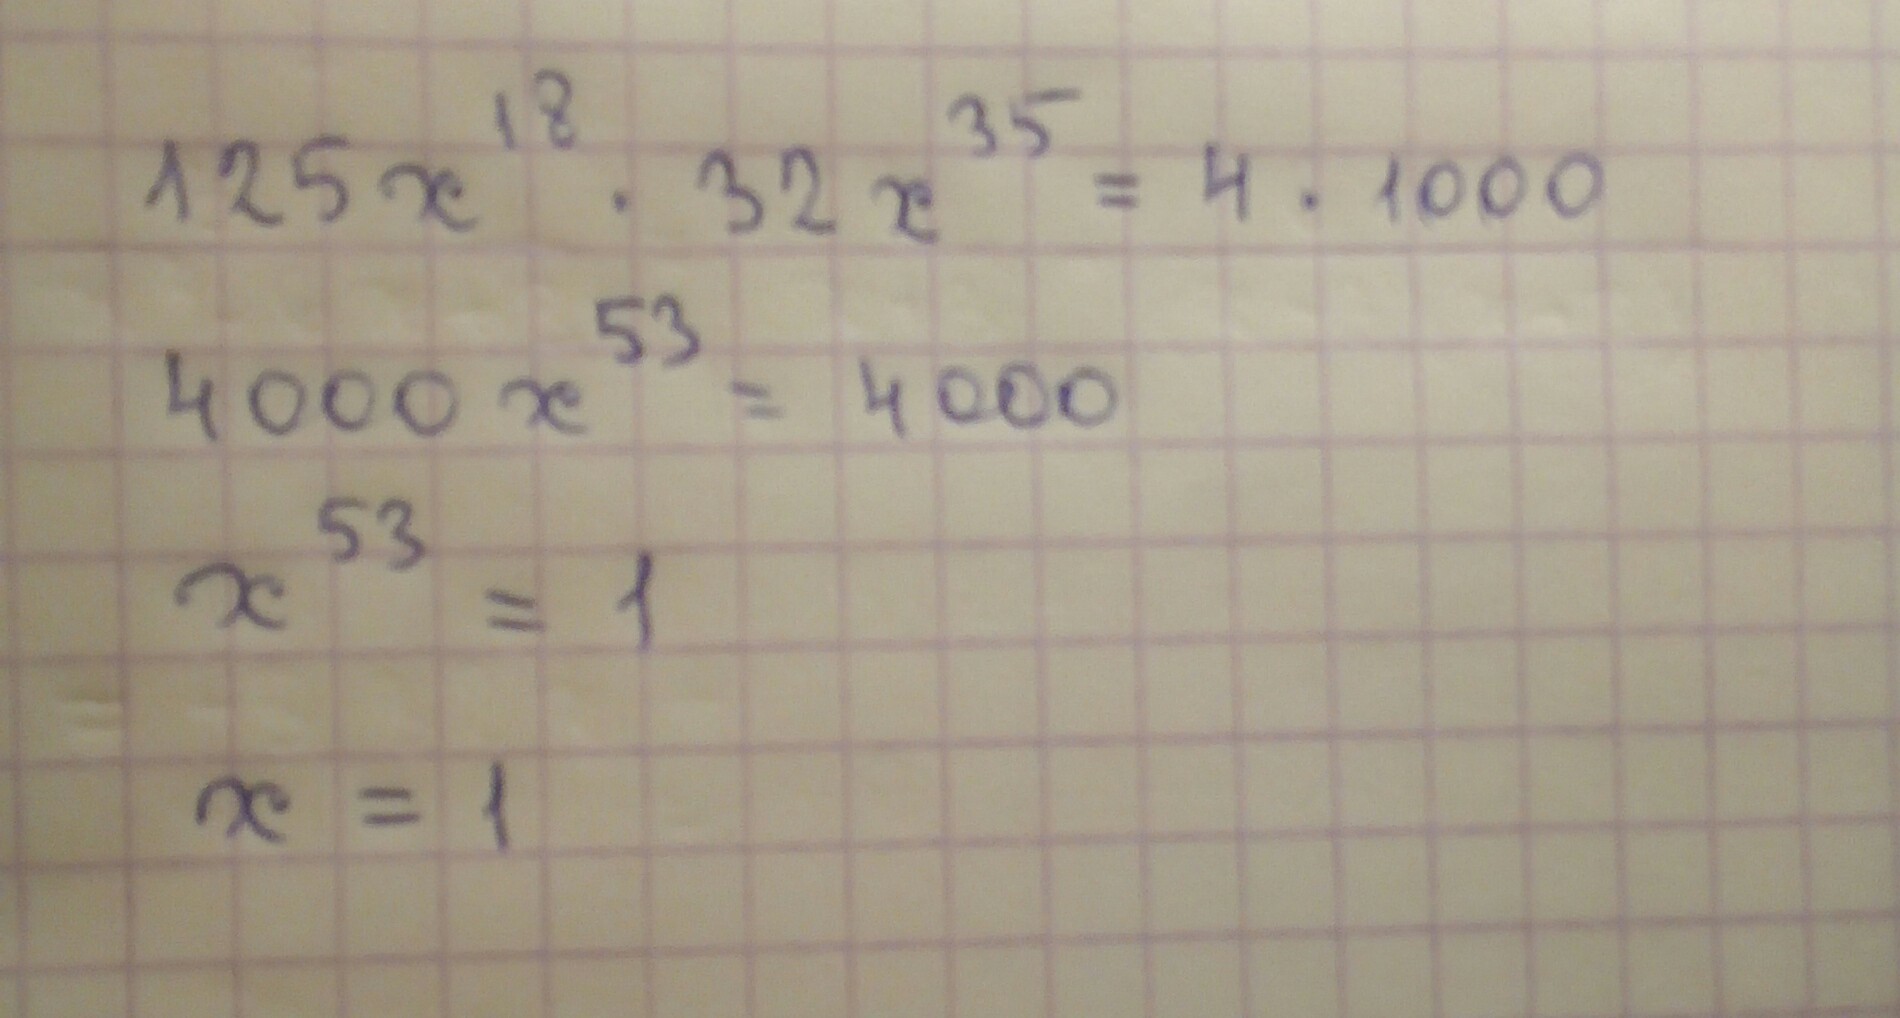 125x¹⁸ · 32x³⁵ = 4 · 1000
4000x⁵³ = 4000
x⁵³ = 1
x = 1